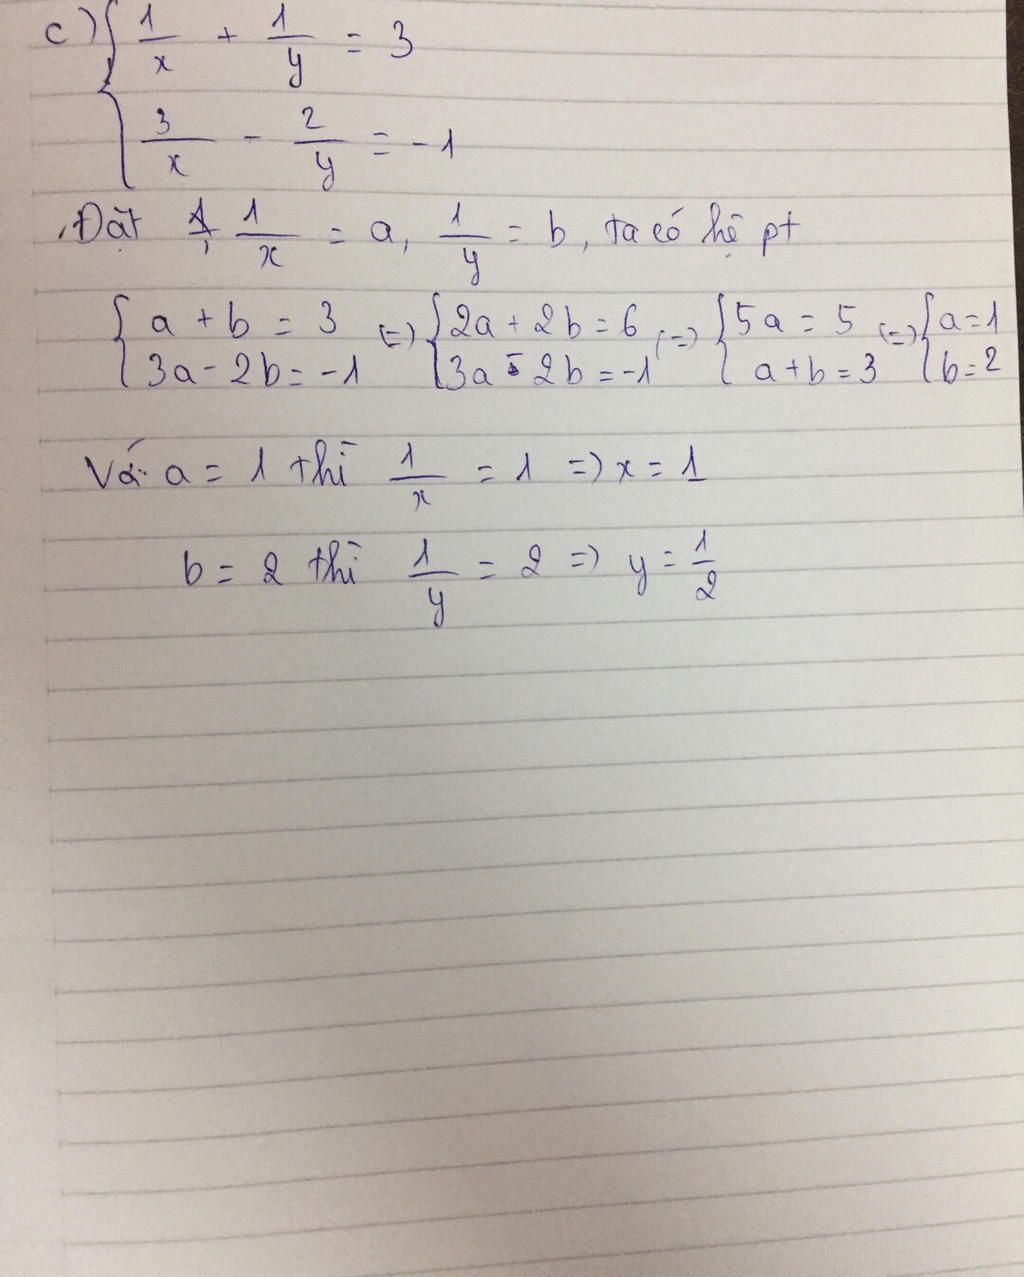 c) { 1/x + 1/y = 3
3/x - 2/y = -1
Đặt 1/x = a, 1/y = b, ta có hệ pt
{ a + b = 3 (=) { 2a + 2b = 6 (=) { 5a = 5 (=) { a = 1
3a - 2b = -1 3a - 2b = -1 a + b = 3 b = 2
Với a = 1 thì 1/x = 1 => x = 1
b = 2 thì 1/y = 2 => y = 1/2